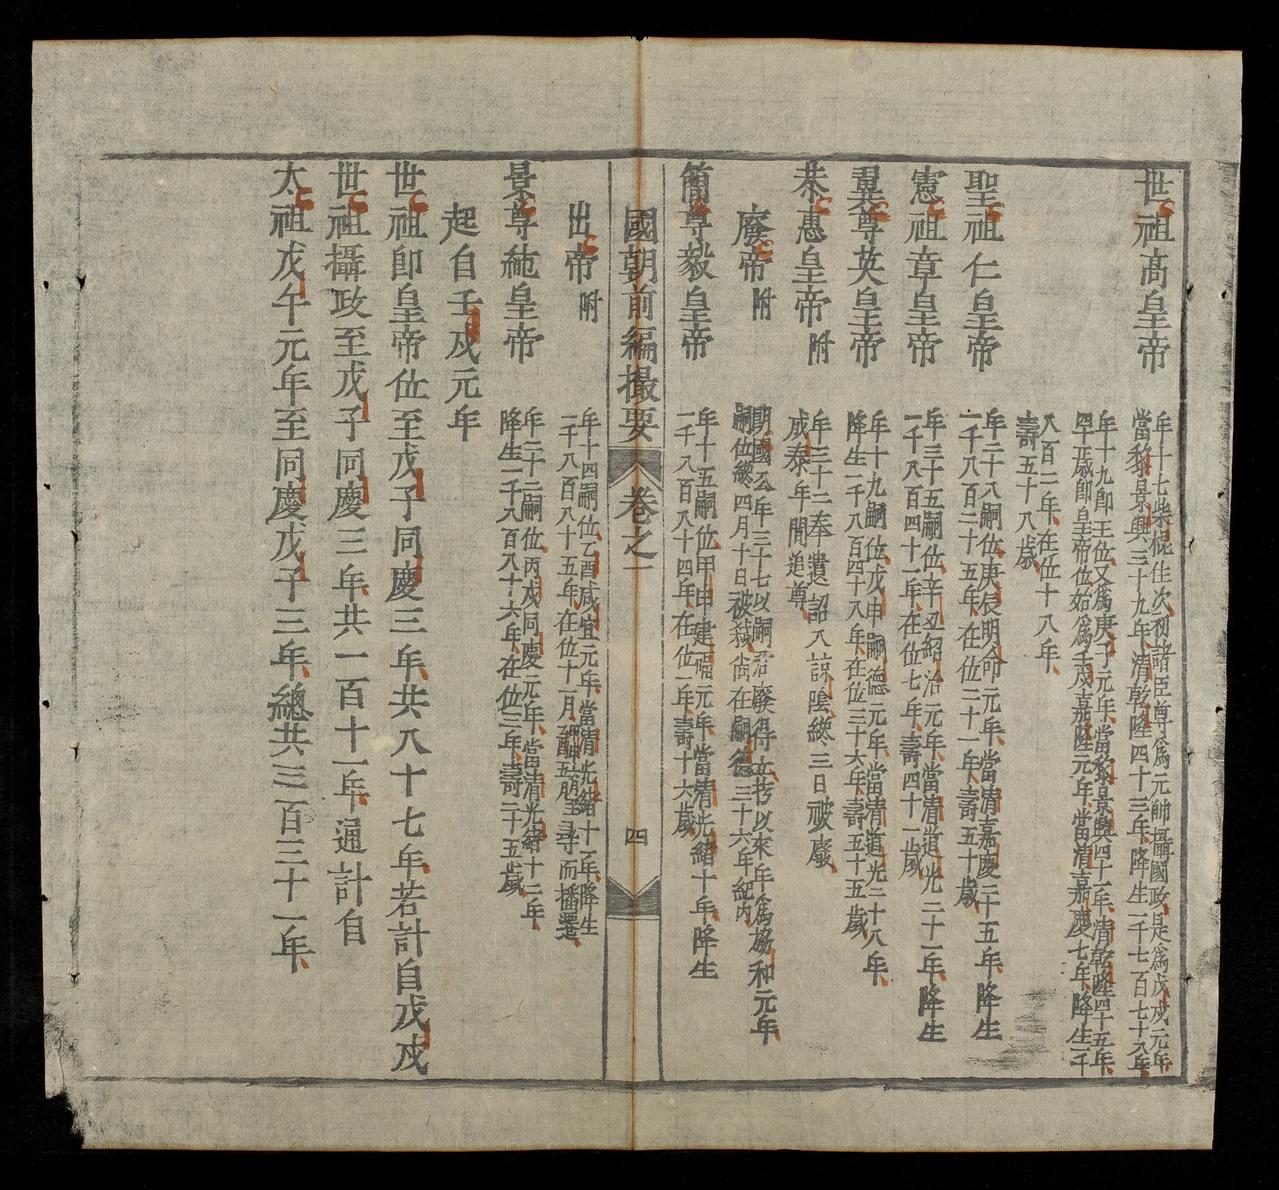 世祖高皇帝
年十七柴棍住次初諸臣尊爲元帥攝國政是爲戊戌元年
當黎景興三十九年清乾隆四十三年降生一千七百七十八年
年十九即王位又爲庚子元年當黎景興四十一年清乾隆四十五年
四十一歲即皇帝位始爲壬戌嘉隆元年當清嘉慶七年降生一千
八百二年在位十八年
壽五十八歲
聖祖仁皇帝
年二十八嗣位庚辰明命元年當清嘉慶二十五年降生
一千八百二十五年在位二十一年壽五十歲
憲祖章皇帝
年三十五嗣位辛丑紹治元年當清道光二十一年降生
一千八百四十一年在位七年壽四十一歲
翼尊英皇帝
年十九嗣位戊申嗣德元年當清道光二十八年
降生一千八百四十八年在位三十六年壽五十五歲
恭惠皇帝附
年三十二奉遺詔入諒陰纔三日被廢
成泰年間追尊
廢帝附
期國公年三十七以嗣君廢得立拷以來年爲協和元年
嗣位纔四月十日被弑尚在嗣德三十六年紀内
簡尊毅皇帝
年十五嗣位甲申建福元年當清光緒十年降生
一千八百八十四年在位一年壽十六歲
國朝前編撮要 卷之一 四
出帝附
年十四嗣位乙酉咸宜元年當清光緒十一年降生
一千八百八十五年在位十一月尋而播遷
景尊純皇帝
年二十二嗣位丙戌同慶元年當清光緒十二年
降生一千八百八十六年在位三年壽二十五歲
起自壬戌元年
世祖即皇帝位至戊子同慶三年共八十七年若計自戊戌
世祖攝政至戊子同慶三年共一百十一年通計自
太祖戊午元年至同慶戊子三年總共三百三十一年